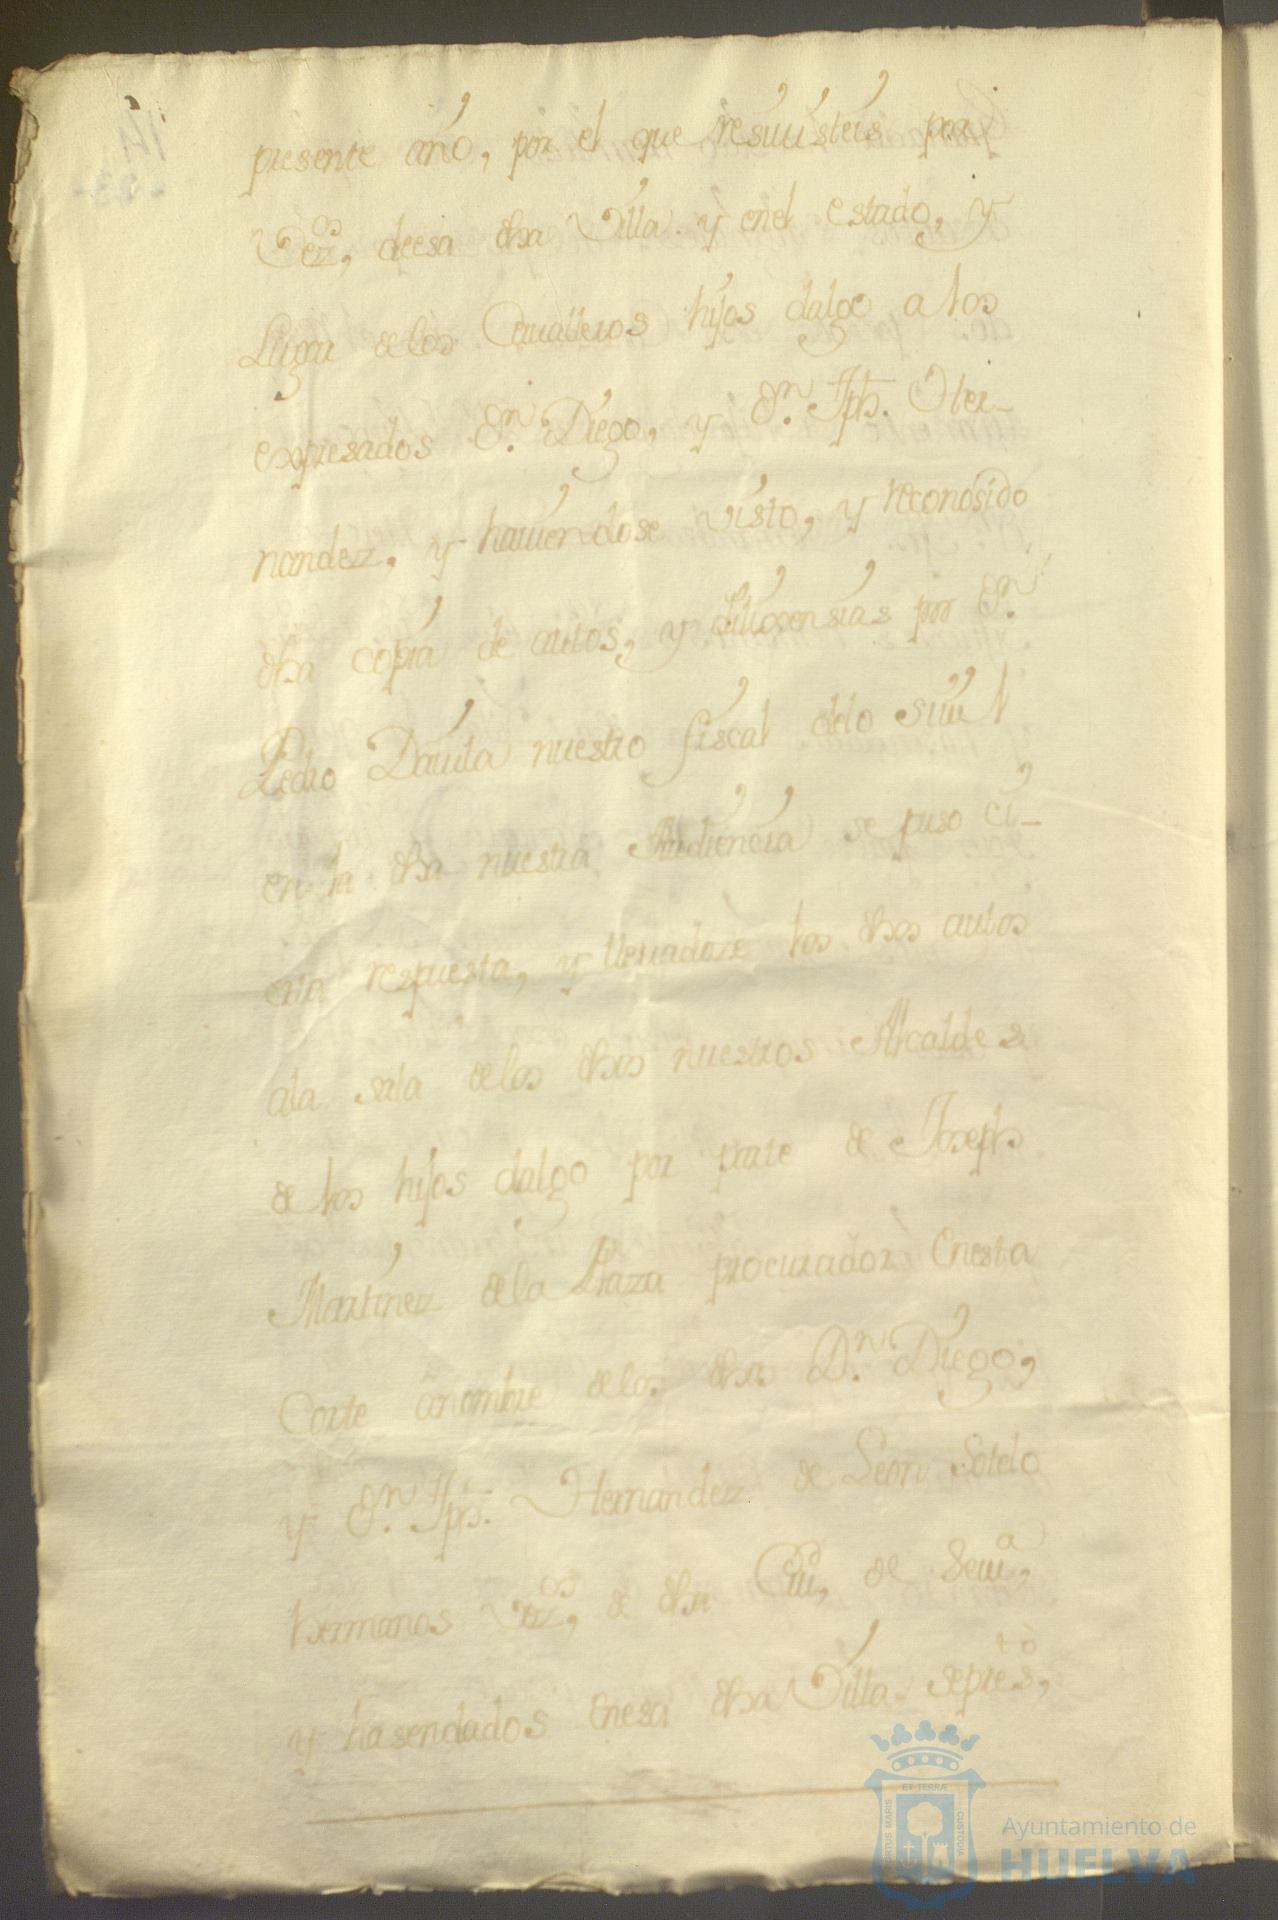 presente año, por el que resiuisteis por
Vez,os deesa dha Villa y enel estado, y
Lugar delos Caualleros hijos dalgo a los
expresados Dn. Diego, y Dn. Jph. Her-
nandez, y hauiendose visto, y reconosido
dha copia de autos, y dilixensias por Dn.
Pedro Dauila nuestro fiscal delo siuil
en la dha nuestra Audiencia se puso ci-
erta respuesta, y lleuadoze los dhos autos
ala sala delos dhos nuestros Alcaldes
de los hijos dalgo por parte de Joseph
Martinez dela Plaza procurador Enesta
Corte ànombre delos dhos Dn. Diego,
y Dn. Jph. Hernandez de Leon Sotelo
hermanos Vez,os de dha Ciu,d de Seui,a
y hasendados Enesa dha Villa sepres,to
ET TERRÆ
PORTUS MARIS
CUSTODIA
Ayuntamiento de
HUELVA